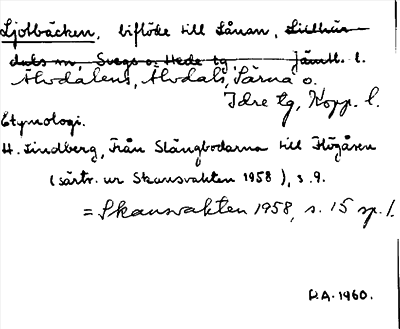 Ljolbäcken, biflöde till Lånan, Lillhär-
dals sn, Svegs o. Hede tg, Jämtl. l.
Älvdalens, Älvdals, Särna o.
Idre tg, Kopp. l.
Etymologi.
H. Lindberg, Från Slängbodarna till Högåsen
(särtr. ur Skansvakten 1958), s. 9.
= Skansvakten 1958, s. 15 sp. 1.
R.A. 1960.